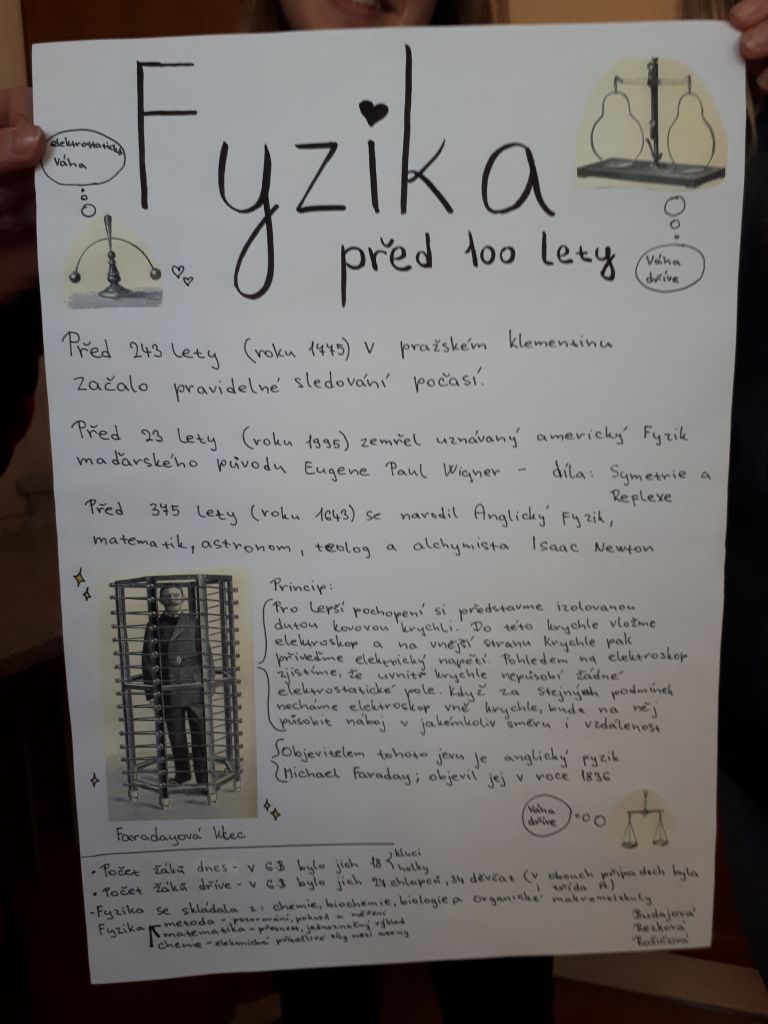 Fyzika
před 100 lety
elektrostatická
váha
Váha
dříve
Před 243 lety (roku 1775) v pražském klementinu
začalo pravidelné sledování počasí.
Před 23 lety (roku 1995) zemřel uznávaný americký Fyzik
maďarského původu Eugene Paul Wigner - díla: Symetrie a
Reflexe
Před 375 lety (roku 1643) se narodil Anglický Fyzik,
matematik, astronom, teolog a alchymista Isaac Newton
Princip:
Pro lepší pochopení si představme izolovanou
dutou kovovou krychli. Do této krychle vložme
elektroskop a na vnější stranu krychle pak
přiveďme elektrický napětí. Pohledem na elektroskop
zjistíme, že uvnitř krychle nepůsobí žádné
elektrostatické pole. Když za stejných podmínek
necháme elektroskop vně krychle, bude na něj
působit náboj v jakémkoliv směru i vzdálenost
Objevitelem tohoto jevu je anglický fyzik
Michael Faraday; objevil jej v roce 1836
Faradayová klec
Váha
dříve
• Počet žáků dnes - v 6.B bylo jich 18
kluci
holky
• Počet žáků dříve - v 6.B bylo jich 24 chlapců, 34 děvčat (v obouch případech byla
i třída A)
- Fyzika se skládala z: chemie, biochemie, biologie a organické makromolekuly
Fyzika
metoda - pozorování, pokus a měření
matematika - přesnou, jednoznačný výklad
chemie - elektronické přitažlivé síly mezi atomy
Budajová
Rezková